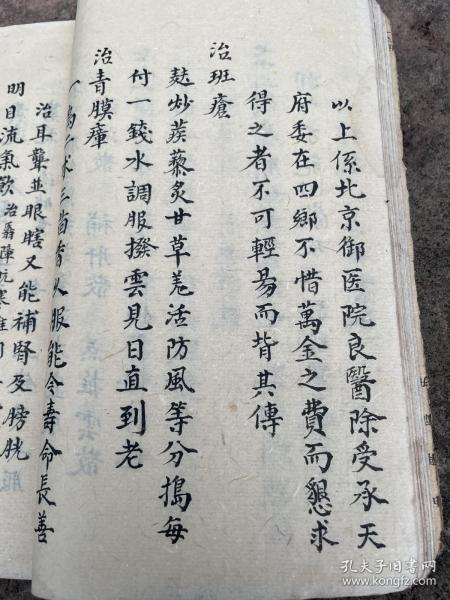 以上係北京御医院良醫除受承天
府委在四鄉不惜萬金之費而懇求
得之者不可輕易而背其傳
治班瘡
麸炒蒺藜炙甘草羌活防風等分搗每
付一錢水調服撥雲見日直到老
治青膜瘴
服能令壽命長善
治耳聾並眼瞎又能補腎及膀胱
明目流氣飲
孔夫子旧书网
www.kongfz.com